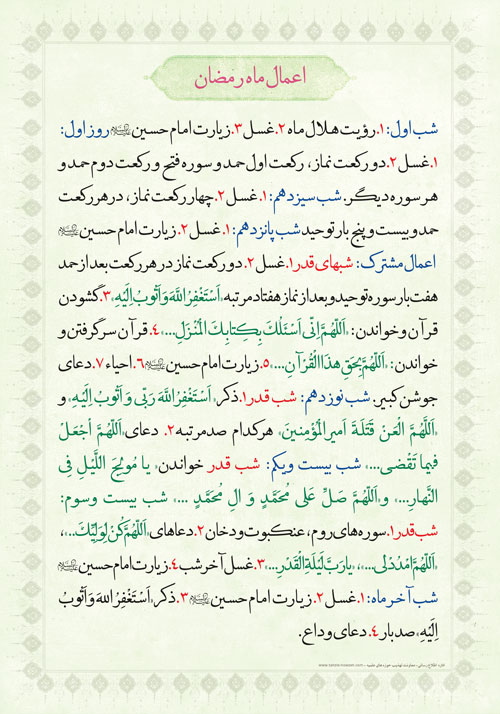 اعمال ماه رمضان
شب اول: ۱. رؤیت هلال ماه ۲. غسل ۳. زیارت امام حسین علیه‌السلام روز اول:
۱. غسل ۲. دو رکعت نماز، رکعت اول حمد و سوره فتح و رکعت دوم حمد و
هر سوره دیگر. شب سیزدهم: ۱. غسل ۲. چهار رکعت نماز، در هر رکعت
حمد و بیست و پنج بار توحید شب پانزدهم: ۱. غسل ۲. زیارت امام حسین علیه‌السلام
اعمال مشترک: شبهای قدر ۱. غسل ۲. دو رکعت نماز در هر رکعت بعد از حمد
هفت بار سوره توحید و بعد از نماز هفتاد مرتبه «اَسْتَغْفِرُ اللهَ وَ اَتُوبُ اِلَیْهِ» ۳. گشودن
قرآن و خواندن: «اَللّهُمَّ اِنّی اَسْئَلُکَ بِکِتابِکَ الْمُنْزَلِ...» ۴. قرآن سر گرفتن و
خواندن: «اَللّهُمَّ بِحَقِّ هذَا الْقُرْآنِ...» ۵. زیارت امام حسین علیه‌السلام ۶. احیاء ۷. دعای
جوشن کبیر. شب نوزدهم: شب قدر ۱. ذکر «اَسْتَغْفِرُ اللهَ رَبّی وَ اَتُوبُ اِلَیْهِ» و
«اَللّهُمَّ الْعَنْ قَتَلَةَ اَمیرِ الْمُؤْمِنینَ» هر کدام صد مرتبه ۲. دعای «اَللّهُمَّ اجْعَلْ
فیما تَقْضی...» شب بیست ویکم: شب قدر خواندن «یا مُولِجَ اللَّیْلِ فِی
النَّهارِ...» و «اَللّهُمَّ صَلِّ عَلی مُحَمَّدٍ وَ الِ مُحَمَّدٍ ...» شب بیست وسوم:
شب قدر ۱. سوره های روم، عنکبوت و دخان ۲. دعاهای «اَللّهُمَّ کُنْ لِوَلِیِّکَ...»،
«اَللّهُمَّ امْدُدْ لی...»، «یا رَبَّ لَیْلَةِ الْقَدْرِ...» ۳. غسل آخر شب ۴. زیارت امام حسین علیه‌السلام
شب آخر ماه: ۱. غسل ۲. زیارت امام حسین علیه‌السلام ۳. ذکر «اَسْتَغْفِرُ اللهَ وَ اَتُوبُ
اِلَیْهِ» صد بار ۴. دعای وداع.